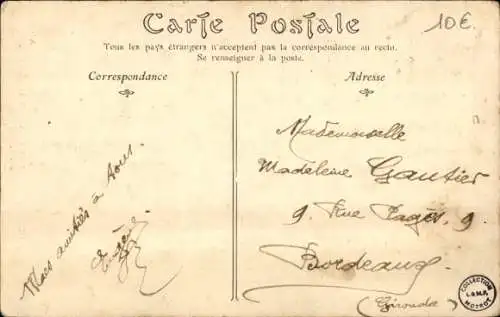 Carte Postale
10€
Tous les pays étrangers n'acceptent pas la correspondance au recto.
Se renseigner à la poste.
Correspondance
Mes amitiés à tous.
Adresse
Mademoiselle
Madeleine Gautier
9. Rue Pagès. 9
Bordeaux
(Gironde)
COLLECTION